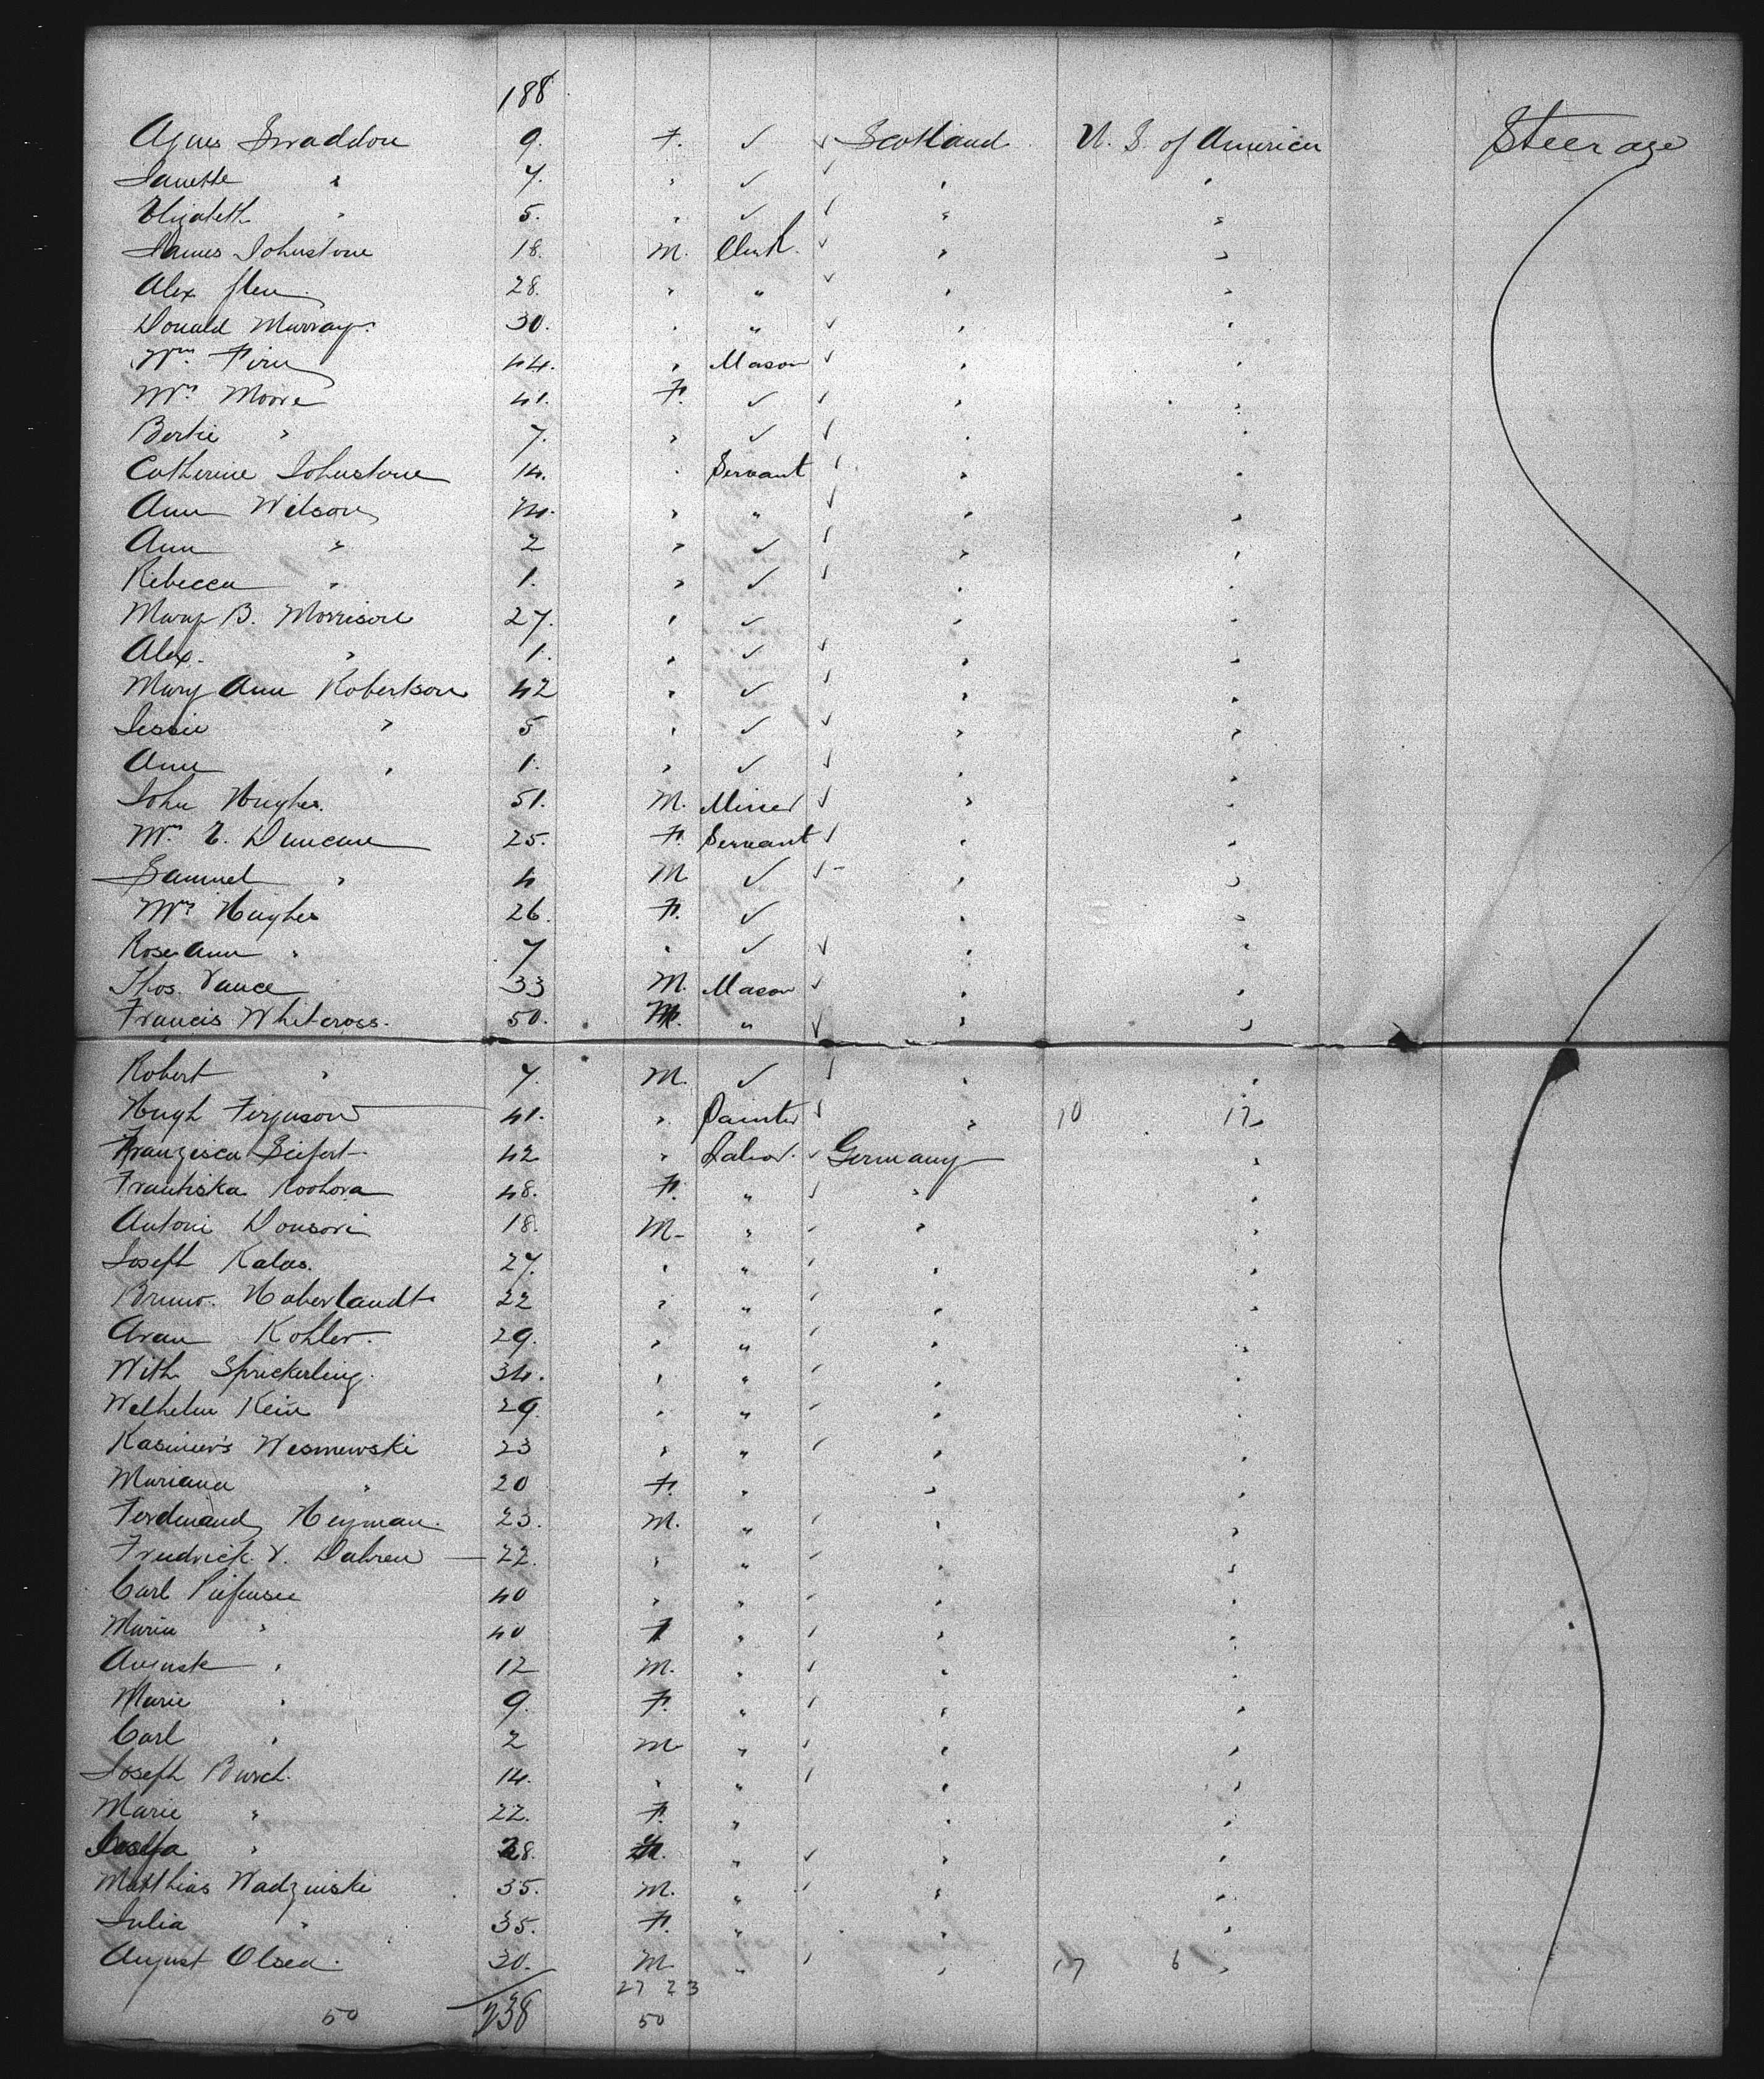 188
Agnes Swaddon 9. F. ✓ ✓ Scotland U. S. of America Steerage
Janette " 7. " ✓ ✓ " "
Elizabeth " 5. " ✓ ✓ " "
James Johnstone 18. M. Clerk. ✓ " "
Alex 28. " " ✓ " "
Donald Murray. 30. " " ✓ " "
Wm. Firn 44. " Mason ✓ " "
Mrs. Moore 41. F. ✓ ✓ " "
Bertie " 7. " ✓ ✓ " "
Catherine Johnstone 14. " Servant ✓ " "
Ann Wilson " " ✓ " "
Ann " 2 " ✓ ✓ " "
Rebecca " 1. " ✓ ✓ " "
Mary B. Morrison 27. " ✓ " "
Alex. " 1. " ✓ ✓ " "
Mary Ann Robertson 42 " ✓ ✓ " "
Jessie " 5 " ✓ ✓ " "
Ann " 1. " ✓ ✓ " "
John Hughes. 51. M. Miner ✓ " "
Mrs. E. Duncan 25. F. Servant ✓ " "
Samuel " 4 M ✓ ✓ " "
Mrs. Hughes 26. F. ✓ " "
Rose Ann " 7 " ✓ ✓ " "
Thos. Vance 33 M. Mason ✓ " "
Francis Whitcross. 50. M. " ✓ " "
Robert " 7. M. ✓ ✓ " "
Hugh Ferguson 41. " Painter ✓ " 10 17 "
Franzisca Seifert 42 " Labor. ✓ Germany "
Frantiska Roohova 48. F. " ✓ " "
Antoni Donsovi 18. M. " ✓ " "
Joseph Kalas. 27. " " ✓ " "
Bruno. Haberlandt 22 " " ✓ " "
Aran Kohler. 29. " " ✓ " "
With Sprickerling. 34. " " ✓ " "
Welhelm Kein 29. " " ✓ " "
Kasimer's Wesnewski 23 " " ✓ " "
Mariana " 20 F. " " "
Ferdinand Heyman. 23. M. " ✓ " "
Fredrick. V. Dahren 22. " " ✓ " "
Carl Piefensee 40 " " ✓ " "
Maria " 40 F " ✓ " "
August " 12 M. " ✓ " "
Marie " 9. F. " ✓ " "
Carl " 2 M " ✓ " "
Joseph Burch. 14. " " ✓ " "
Marie " 22. F. " " "
Josefa " 28. " ✓ " "
Matthias Wadzinski 35. M. " ✓ " "
Julia " 35. F. " " "
August Olsen. 30. M " ✓ " 17 6 "
27 23
50 238 50